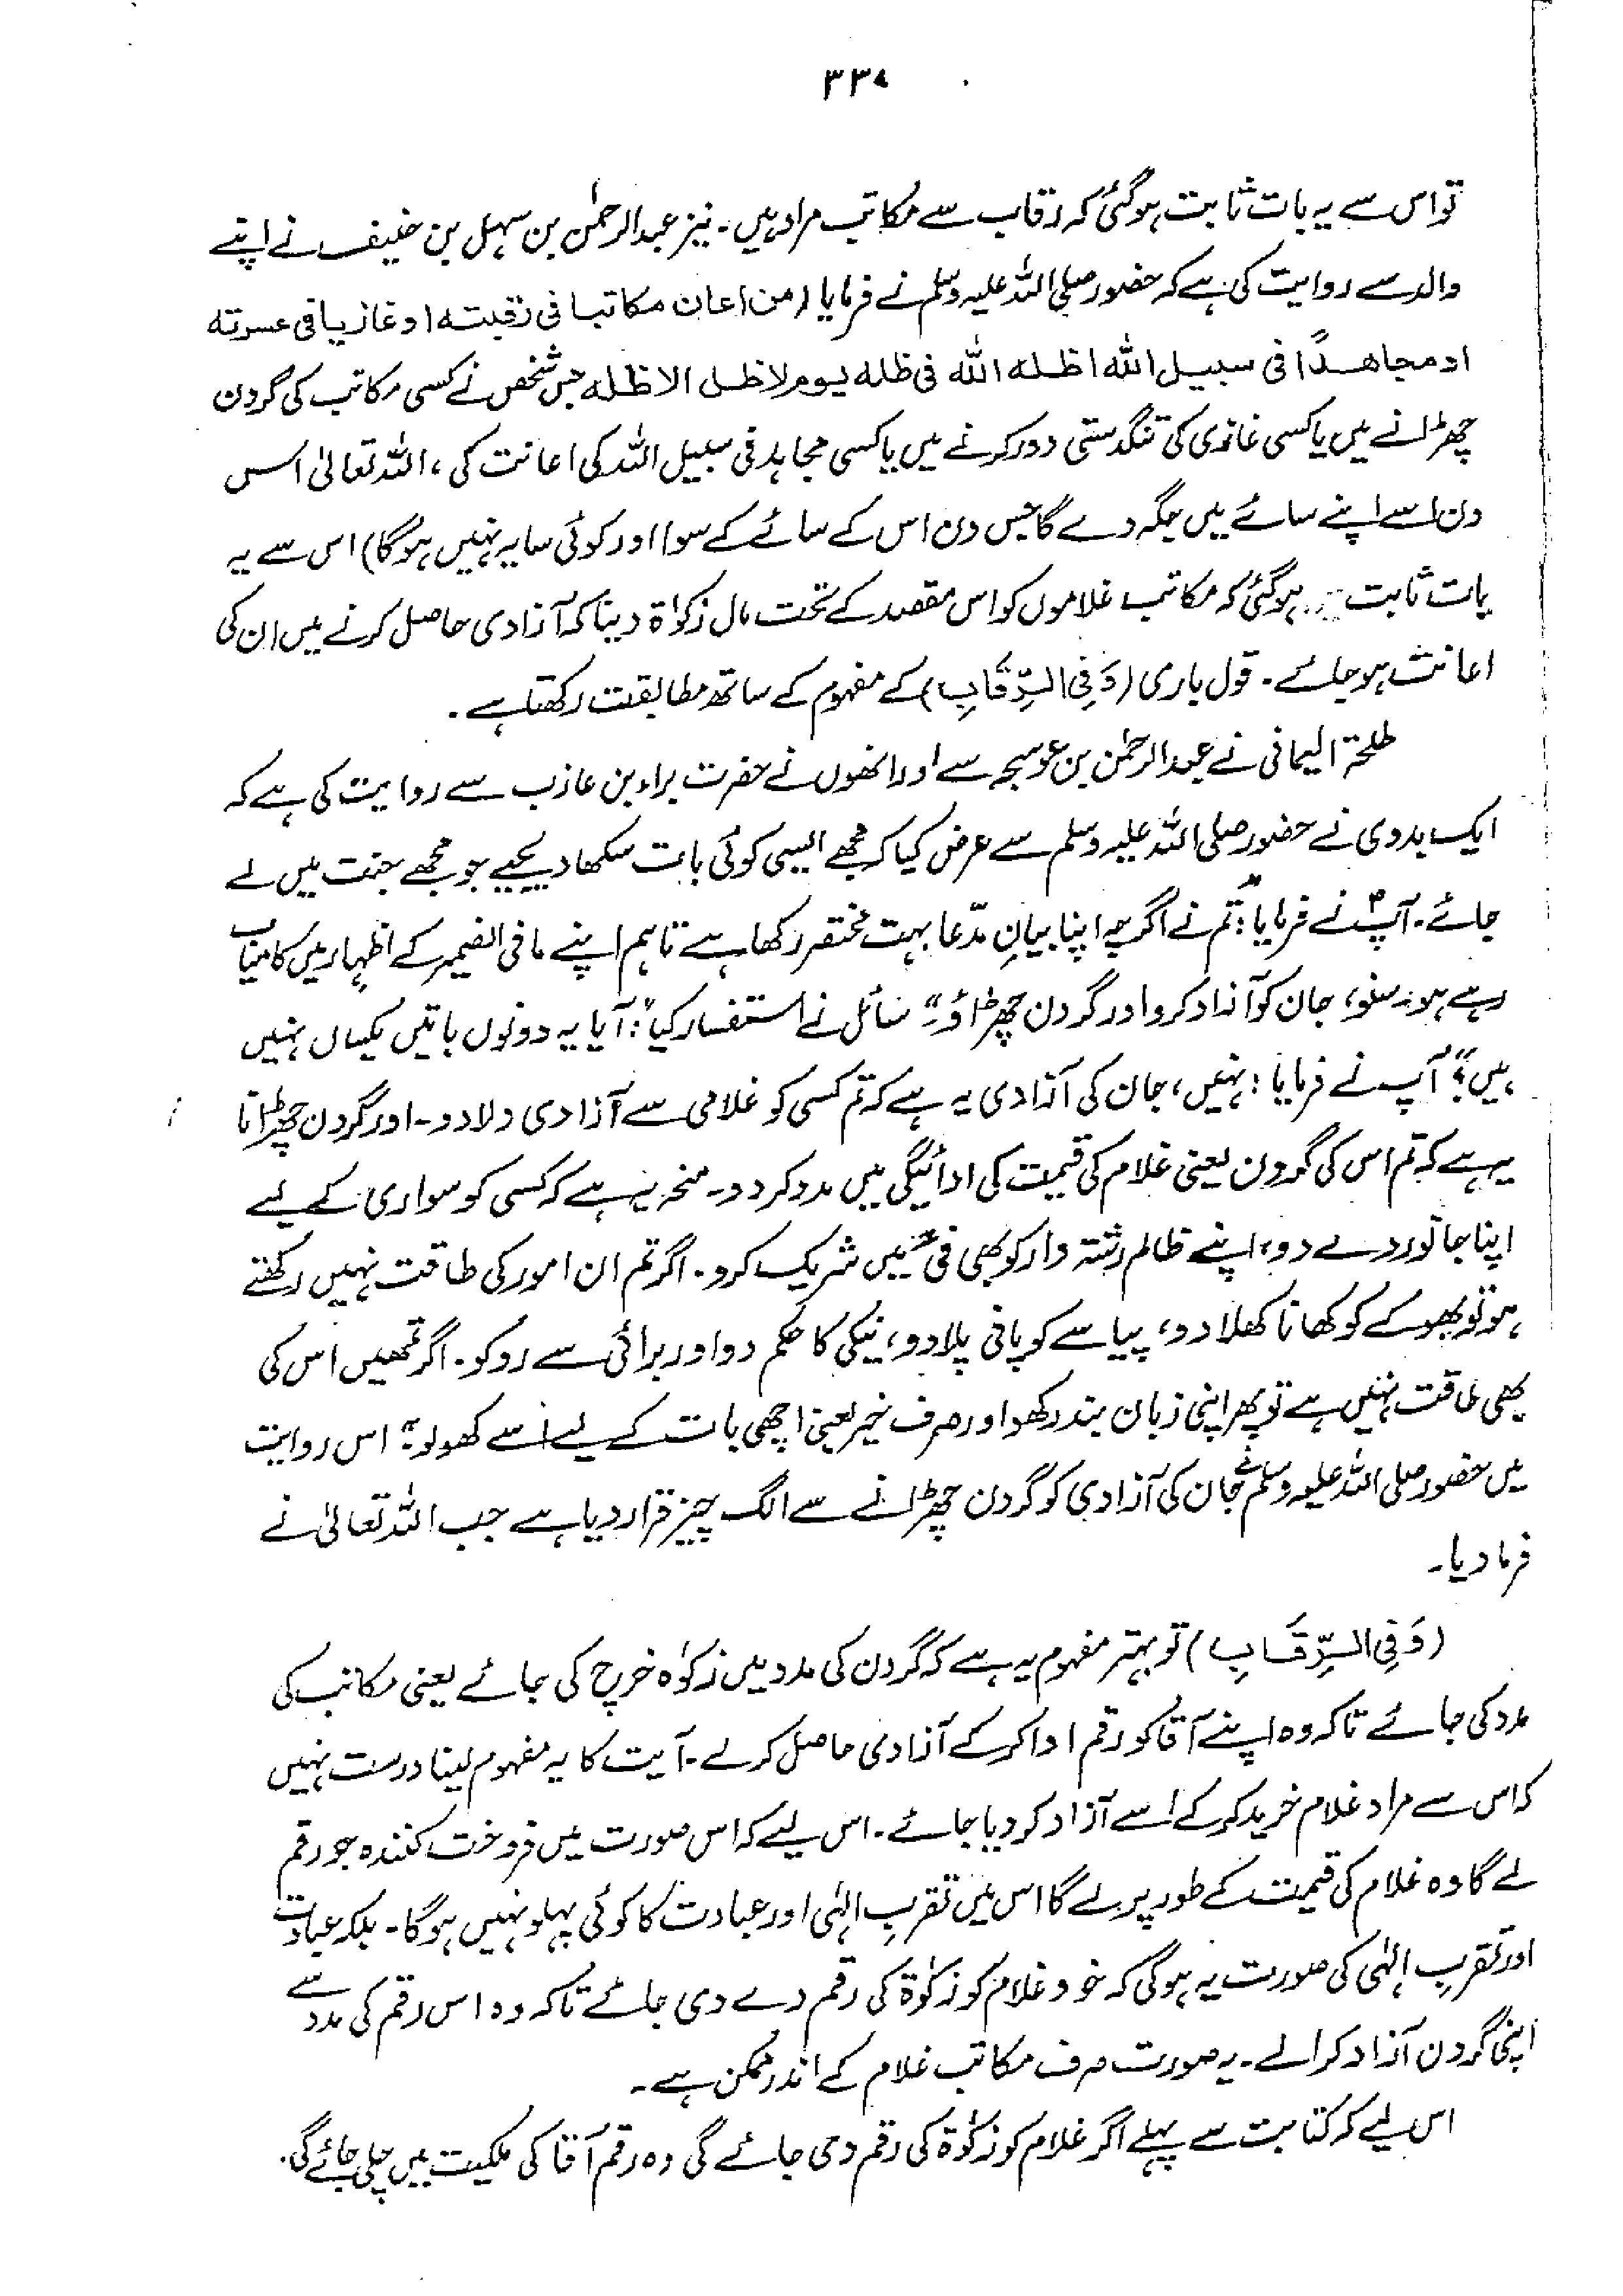 ۳۳۸
تو اس سے یہ بات ثابت ہوگئی کہ رقاب سے مکاتب مراد ہیں۔ نیز عبدالرحمٰن بن سہل بن حنیف نے اپنے
والد سے روایت کی ہے کہ حضور صلی اللہ علیہ وسلم نے فرمایا (من اعان مکاتبا فی رقبتہ او غازیا فی عسرتہ
او مجاھدًا فی سبیل اللہ اظلہ اللہ فی ظلہ یوم لا ظل الا ظلہ جس شخص نے کسی مکاتب کی گردن
چھڑانے میں یا کسی غازی کی تنگدستی دور کرنے میں یا کسی مجاہد فی سبیل اللہ کی اعانت کی، اللہ تعالیٰ اس
دن اسے اپنے سائے میں جگہ دے گا جس دن اس کے سائے کے سوا اور کوئی سایہ نہیں ہوگا) اس سے یہ
بات ثابت ہوگئی کہ مکاتب غلاموں کو اس مقصد کے تحت مال زکوٰۃ دینا کہ آزادی حاصل کرنے میں ان کی
اعانت ہو جائے۔ قول باری (وَفِی الرِّقَابِ) کے مفہوم کے ساتھ مطابقت رکھتا ہے۔
طلحۃ الیمانی نے عبدالرحمٰن بن عوسجہ سے اور انھوں نے حضرت براء بن عازب سے روایت کی ہے کہ
ایک بدوی نے حضور صلی اللہ علیہ وسلم سے عرض کیا کہ مجھے ایسی کوئی بات سکھا دیجیے جو مجھے جنت میں لے
جائے۔ آپؐ نے فرمایا: "تم نے اگرچہ اپنا بیانِ مدّعا بہت مختصر رکھا ہے تاہم اپنے ما فی الضمیر کے اظہار میں کامیاب
رہے ہو۔ سنو، جان کو آزاد کرو اور گردن چھڑاؤ۔" سائل نے استفسار کیا: "آیا یہ دونوں باتیں یکساں نہیں
ہیں؟" آپ نے فرمایا: نہیں، جان کی آزادی یہ ہے کہ تم کسی کو غلامی سے آزادی دلا دو۔ اور گردن چھڑانا
یہ ہے کہ تم اس کی گردن یعنی غلام کی قیمت کی ادائیگی میں مدد کر دو۔ منحہ یہ ہے کہ کسی کو سواری کے لیے
اپنا جانور دے دو، اپنے ظالم رشتہ دار کو بھی فی میں شریک کرو۔ اگر تم ان امور کی طاقت نہیں رکھتے
ہو تو بھوکے کو کھانا کھلا دو، پیاسے کو پانی پلا دو، نیکی کا حکم دو اور برائی سے روکو۔ اگر تمھیں اس کی
بھی طاقت نہیں ہے تو پھر اپنی زبان بند رکھو اور صرف خیر یعنی اچھی بات کے لیے اسے کھولو۔" اس روایت
میں حضور صلی اللہ علیہ وسلم نے جان کی آزادی کو گردن چھڑانے سے الگ چیز قرار دیا ہے جب اللہ تعالیٰ نے
فرما دیا۔
(وَفِی الرِّقَابِ) تو بہتر مفہوم یہ ہے کہ گردن کی مدد میں زکوٰۃ خرچ کی جائے یعنی مکاتب کی
مدد کی جائے تاکہ وہ اپنے آقا کو رقم ادا کر کے آزادی حاصل کر لے۔ آیت کا یہ مفہوم لینا درست نہیں
کہ اس سے مراد غلام خرید کر کے اسے آزاد کر دیا جائے۔ اس لیے کہ اس صورت میں فروخت کنندہ جو رقم
لے گا وہ غلام کی قیمت کے طور پر لے گا اس میں تقربِ الٰہی اور عبادت کا کوئی پہلو نہیں ہوگا۔ بلکہ عبادت
اور تقربِ الٰہی کی صورت یہ ہوگی کہ خود غلام کو زکوٰۃ کی رقم دے دی جائے تاکہ وہ اس رقم کی مدد سے
اپنی گردن آزاد کرا لے۔ یہ صورت صرف مکاتب غلام کے اندر ممکن ہے۔
اس لیے کہ کتابت سے پہلے اگر غلام کو زکوٰۃ کی رقم دی جائے گی وہ رقم آقا کی ملکیت میں چلی جائے گی۔